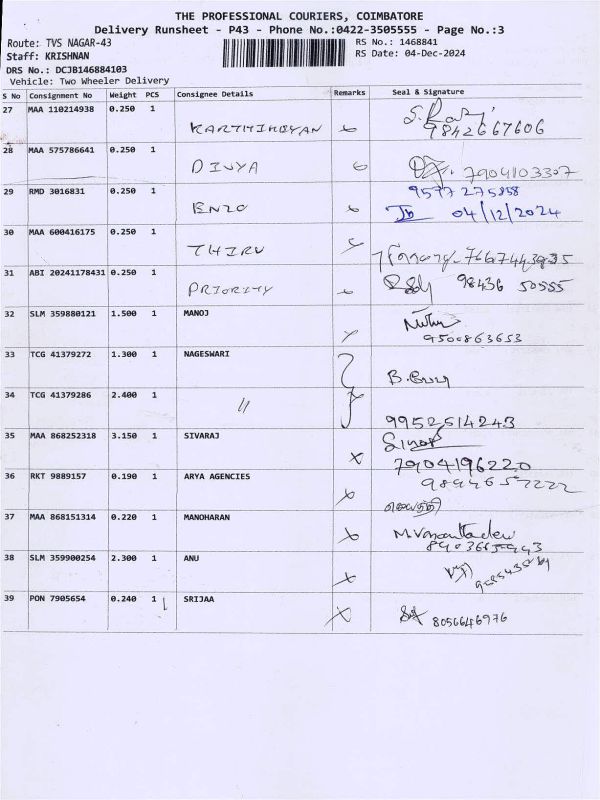 THE PROFESSIONAL COURIERS, COIMBATORE
Delivery Runsheet - P43 - Phone No.:0422-3505555 - Page No.:3
Route: TVS NAGAR-43 RS No.: 1468841
Staff: KRISHNAN RS Date: 04-Dec-2024
DRS No.: DCJB146884103
Vehicle: Two Wheeler Delivery
S No Consignment No Weight PCS Consignee Details Remarks Seal & Signature
27 MAA 110214938 0.250 1 KARTHIKEYAN 9842667606
28 MAA 575786641 0.250 1 DIVYA 7904103307
29 RMD 3016831 0.250 1 ENZO 9577275858
04/12/2024
30 MAA 600416175 0.250 1 THIRU
31 ABI 20241178431 0.250 1 PRIORITY 98436 50555
32 SLM 359880121 1.500 1 MANOJ
9500863653
33 TCG 41379272 1.300 1 NAGESWARI
34 TCG 41379286 2.400 1 〃 9952514243
35 MAA 868252318 3.150 1 SIVARAJ
7904196220
36 RKT 9889157 0.190 1 ARYA AGENCIES
37 MAA 868151314 0.220 1 MANOHARAN
38 SLM 359900254 2.300 1 ANU
39 PON 7905654 0.240 1 SRIJAA 8056646976